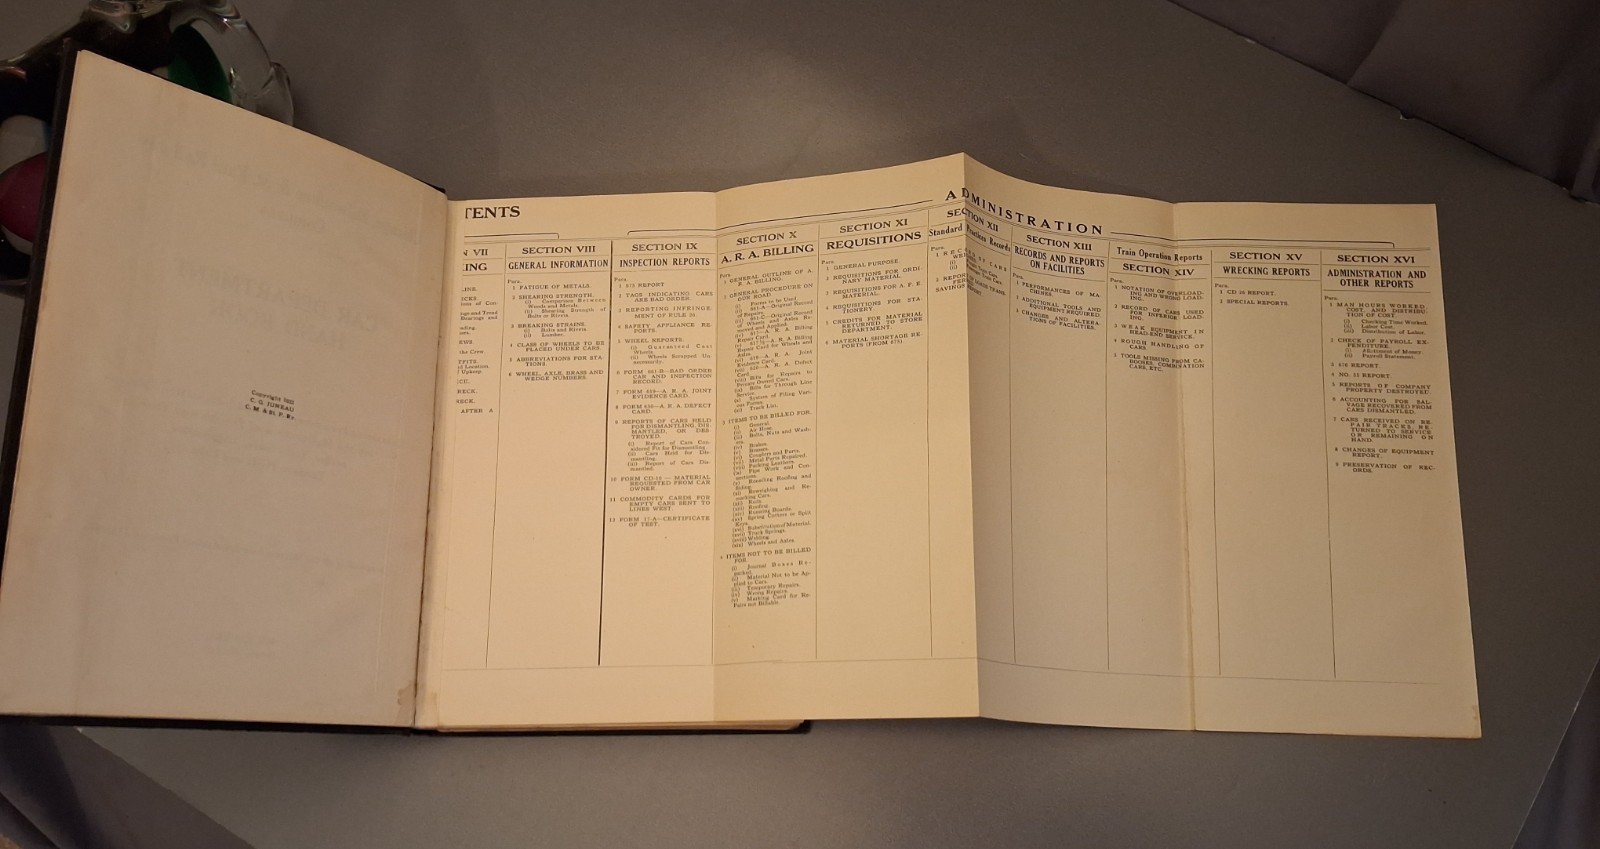 Copyright
C. G. JUNEAU
C. M & St. P. Ry.
TENTS
ADMINISTRATION
N VII
ING
LINE.
the Crew.
Upkeep.
AFTER A
SECTION VIII
GENERAL INFORMATION
Para.
1 FATIGUE OF METALS.
2 SHEARING STRENGTH.
(i) Comparison Between
Woods and Metals.
(ii) Shearing Strength of
Bolts or Rivets.
3 BREAKING STRAINS.
(i) Bolts and Rivets.
(ii) Lumber.
4 CLASS OF WHEELS TO BE
PLACED UNDER CARS.
5 ABBREVIATIONS FOR STA-
TIONS.
6 WHEEL, AXLE, BRASS AND
WEDGE NUMBERS.
SECTION IX
INSPECTION REPORTS
Para.
1 REPORT
2 TAGS INDICATING CARS
ARE BAD ORDER.
3 REPORTING INFRINGE-
MENT OF RULE
4 SAFETY APPLIANCE RE-
PORTS
5 WHEEL REPORTS.
(i) Guaranteed Cast
Wheels.
(ii) Wheels Scrapped Un-
necessarily.
6 FORM BAD ORDER
CAR AND INSPECTION
RECORD.
7 FORM A. R. A. JOINT
EVIDENCE CARD.
8 FORM A. R. A. DEFECT
CARD.
9 REPORTS OF CARS HELD
FOR DISMANTLING, DIS-
MANTLED, OR DES-
TROYED.
(i) Report of Cars Con-
sidered Fit for Dismantling.
(ii) Cars Held for Dis-
mantling.
(iii) Report of Cars Dis-
mantled.
10 FORM CD-10 — MATERIAL
REQUESTED FROM CAR
OWNER.
11 COMMODITY CARDS FOR
EMPTY CARS SENT TO
LINES WEST.
12 FORM 17-A—CERTIFICATE
OF TEST.
SECTION X
A. R. A. BILLING
Para.
1 GENERAL OUTLINE OF A.
R. A. BILLING.
2 GENERAL PROCEDURE ON
OUR ROAD.
(i) Forms to be Used
Original Record
of Repairs.
Original Record
of Wheels and Axles Re-
moved and Applied.
A. R. A. Billing
Repair Card.
A. R. A. Billing
Repair Card for Wheels and
Axles.
A. R. A. Joint
Evidence Card.
A. R. A. Defect
Card.
Bills for Repairs to
Private Owned Cars.
Bills for Through Line
Service.
System of Filing Vari-
ous Forms.
Track List.
3 ITEMS TO BE BILLED FOR.
(i) General.
(ii) Air Hose.
(iii) Bolts, Nuts and Wash-
ers.
(iv) Brakes.
(v) Brasses.
(vi) Couplers and Parts.
(vii) Metal Parts Repaired.
(viii) Packing Leathers.
(ix) Pipe Work and Con-
nections.
(x) Repairing Roofing and
Siding.
(xi) Reweighing and Re-
marking Cars.
(xii) Rods.
(xiii) Roofing.
(xiv) Running Boards.
(xv) Spring Cotters or Split
Keys.
(xvi) Substitution of Material.
(xvii) Truck Springs.
(xviii) Welding.
(xix) Wheels and Axles.
4 ITEMS NOT TO BE BILLED
FOR
(i) Journal Boxes Re-
packed.
(ii) Material Not to be Ap-
plied to Cars.
(iii) Temporary Repairs.
(iv) Wrong Repairs.
(v) Marking Card for Re-
pairs not Billable.
SECTION XI
REQUISITIONS
Para.
1 GENERAL PURPOSE
2 REQUISITIONS FOR ORDI-
NARY MATERIAL.
3 REQUISITIONS FOR A. F. E.
MATERIAL.
4 REQUISITIONS FOR STA-
TIONERY.
5 CREDITS FOR MATERIAL
RETURNED TO STORE
DEPARTMENT.
6 MATERIAL SHORTAGE RE-
PORTS (FROM 675)
SECTION XII
Standard Practices Records
Para.
SAVINGS
SECTION XIII
RECORDS AND REPORTS
ON FACILITIES
Para.
1 PERFORMANCES OF MA-
CHINES.
2 ADDITIONAL TOOLS AND
EQUIPMENT REQUIRED.
3 CHANGES AND ALTERA-
TIONS OF FACILITIES.
Train Operation Reports
SECTION XIV
Para.
1 NOTATION OF OVERLOAD-
ING AND WRONG LOAD-
ING.
2 RECORD OF CARS USED
FOR INFERIOR LOAD-
ING.
3 WEAK EQUIPMENT IN
HEAD-END SERVICE.
4 ROUGH HANDLING OF
CARS.
5 TOOLS MISSING FROM CA-
BOOSES, COMBINATION
CARS, ETC.
SECTION XV
WRECKING REPORTS
Para.
1 CD REPORT.
2 SPECIAL REPORTS.
SECTION XVI
ADMINISTRATION AND
OTHER REPORTS
Para.
1 MAN HOURS WORKED,
COST, AND DISTRIBU-
TION OF COST.
(i) Checking Time Worked.
(ii) Labor Cost.
(iii) Distribution of Labor.
2 CHECK OF PAYROLL EX-
PENDITURE.
(i) Allotment of Money.
(ii) Payroll Statement.
3 REPORT.
4 NO. REPORT.
5 REPORTS OF COMPANY
PROPERTY DESTROYED.
6 ACCOUNTING FOR SAL-
VAGE RECOVERED FROM
CARS DISMANTLED.
7 CARS RECEIVED ON RE-
PAIR TRACKS, RE-
TURNED TO SERVICE
OR REMAINING ON
HAND.
8 CHANGES OF EQUIPMENT
REPORT.
9 PRESERVATION OF REC-
ORDS.